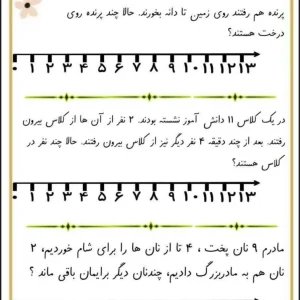 پرنده هم رفتند روی زمین تا دانه بخورند. حالا چند پرنده روی
درخت هستند؟
۰ ۱ ۲ ۳ ۴ ۵ ۶ ۷ ۸ ۹ ۱۰ ۱۱ ۱۲ ۱۳
در یک کلاس ۱۱ دانش آموز نشسته بودند. ۲ نفر از آن ها از کلاس بیرون
رفتند. بعد از چند دقیقه ۴ نفر دیگر نیز از کلاس بیرون رفتند. حالا چند نفر در
کلاس هستند؟
۰ ۱ ۲ ۳ ۴ ۵ ۶ ۷ ۸ ۹ ۱۰ ۱۱ ۱۲ ۱۳
مادرم ۹ نان پخت ، ۴ تا از نان ها را برای شام خوردیم، ۲
نان هم به مادربزرگ دادیم، چندنان دیگر برایمان باقی ماند ؟